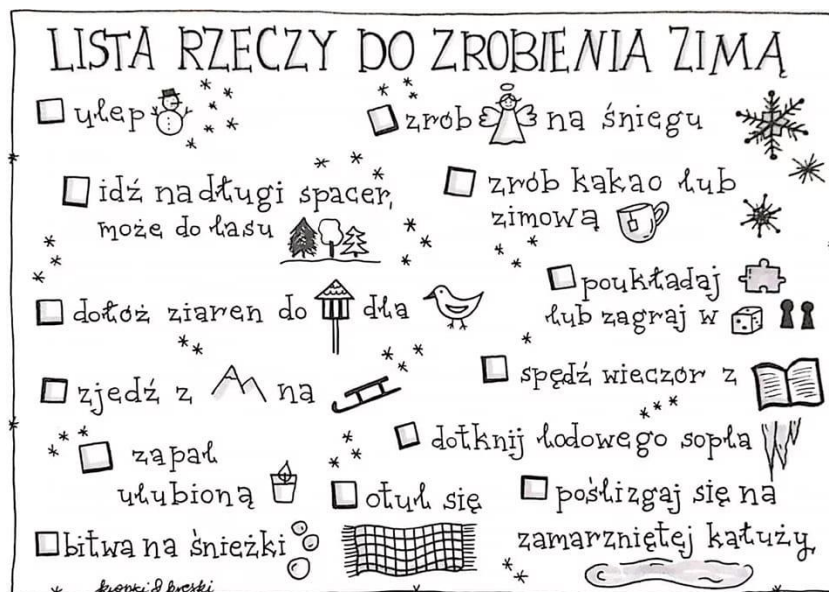 LISTA RZECZY DO ZROBIENIA ZIMĄ
ulep
zrób na śniegu
idź na długi spacer,
może do lasu
zrób kakao lub
zimową
dołóż ziaren do dla
poukładaj
lub zagraj w
zjedź z na
spędź wieczor z
zapal
ulubioną
dotknij lodowego sopla
otul się
poślizgaj się na
zamarzniętej kałuży
bitwa na śnieżki
kropki & kreski